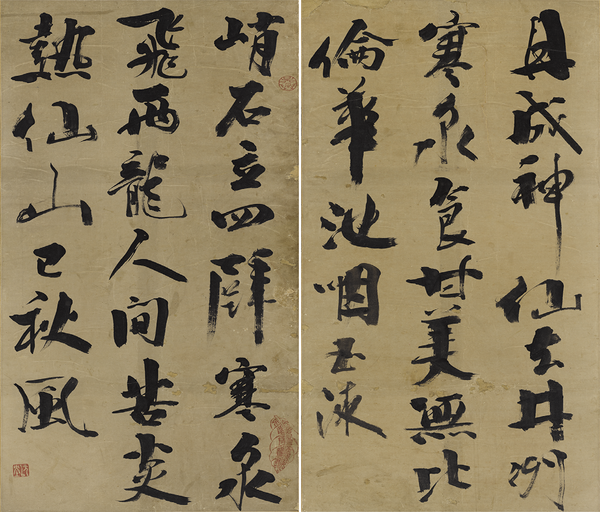 丹成神仙去井冽
寒泉食甘美無比
倫華池咽玉液
峭石立四壁寒泉
飛兩龍人間苦炎
熱仙山已秋風